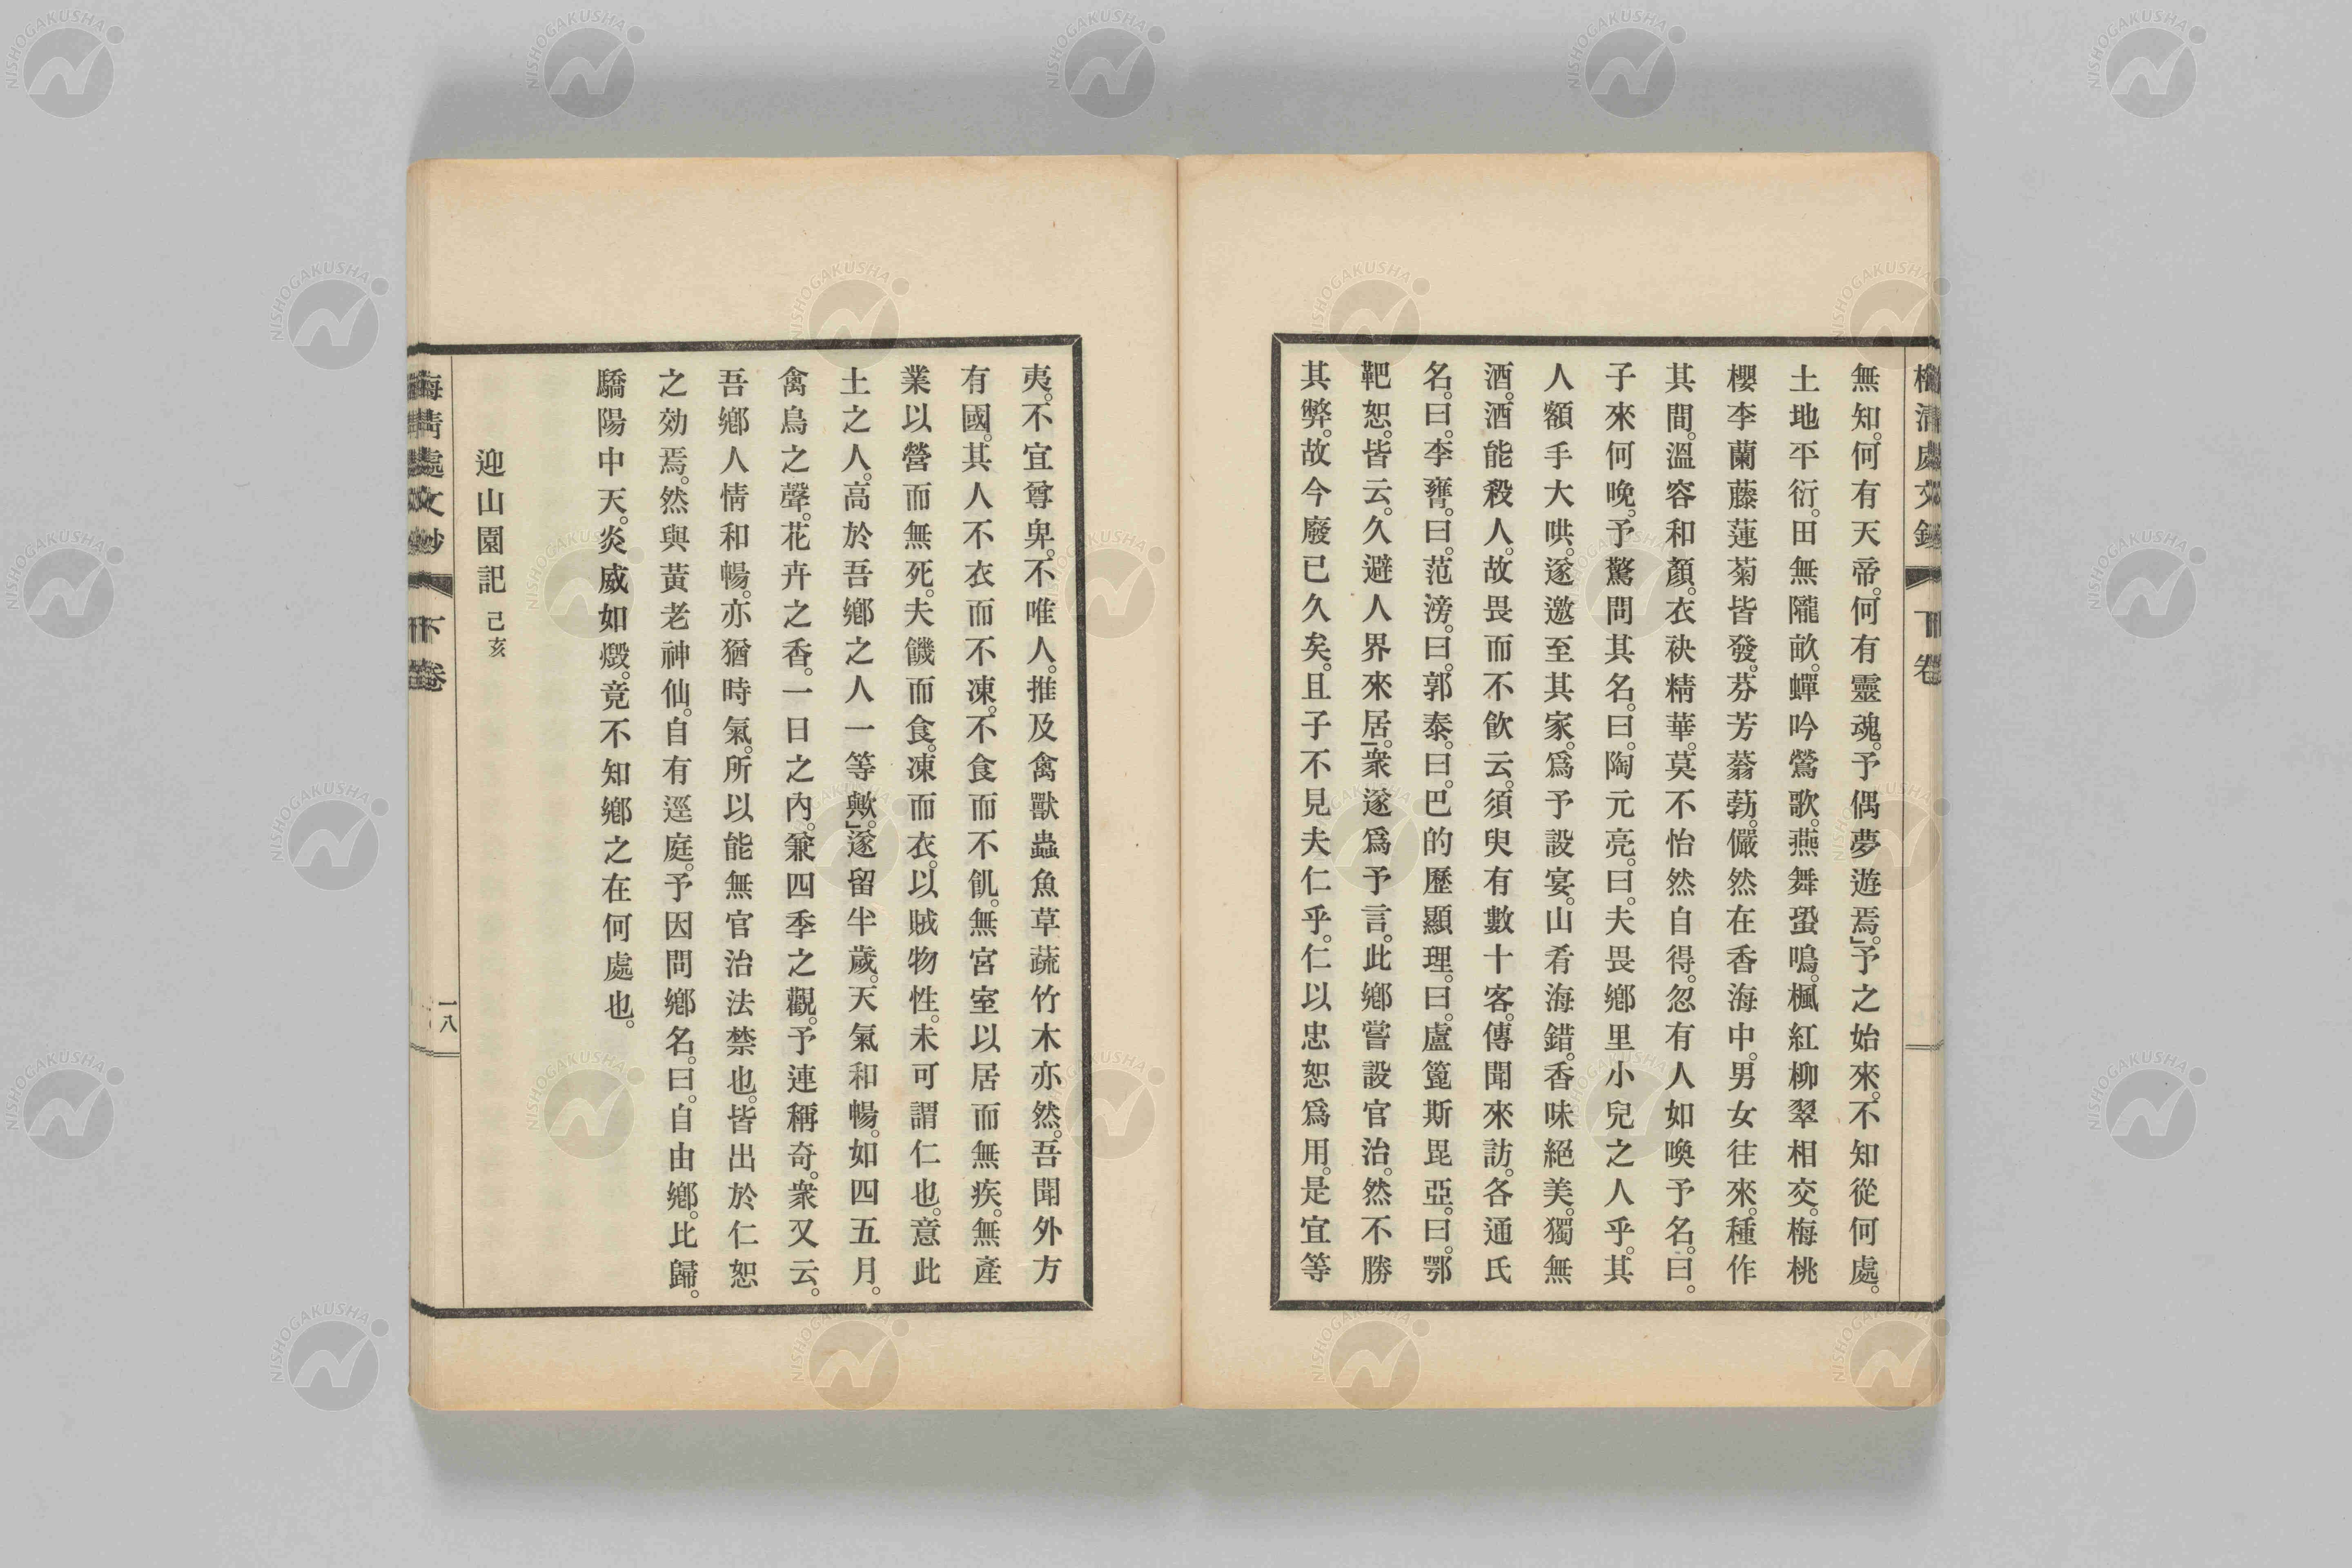 無知。何有天帝。何有靈魂。予偶夢遊焉。」予之始來。不知從何處。
土地平衍。田無隴畝。蟬吟鶯歌。燕舞蛩鳴。楓紅柳翠相交。梅桃
櫻李蘭藤蓮菊皆發。芬芳馞勃。儼然在香海中。男女往來。種作
其間。溫容和顏。衣袂精華。莫不怡然自得。忽有人如喚予名。曰。
子來何晚。予驚問其名。曰。陶元亮。曰。夫畏鄉里小兒之人乎。其
人額手大哄。遂邀至其家。爲予設宴。山肴海錯。香味絕美。獨無
酒。酒能殺人。故畏而不飮云。須臾有數十客。傳聞來訪。各通氏
名。曰。李膺。曰。范滂。曰。郭泰。曰。巴的歷顯理。曰。盧篦斯毘亞。曰。鄂
靶恕。皆云。久避人界來居。」衆遂爲予言。此鄉嘗設官治。然不勝
其弊。故今廢已久矣。且子不見夫仁乎。仁以忠恕爲用。是宜等
夷。不宜尊卑。不唯人。推及禽獸蟲魚草蔬竹木亦然。吾聞外方
有國。其人不衣而不凍。不食而不飢。無宮室以居而無疾。無產
業以營而無死。夫饑而食。凍而衣。以賊物性。未可謂仁也。意此
土之人。高於吾鄉之人一等歟。」遂留半歲。天氣和暢。如四五月。
禽鳥之聲。花卉之香。一日之內。兼四季之觀。予連稱奇。衆又云。
吾鄉人情和暢。亦猶時氣。所以能無官治法禁也。皆出於仁恕
之効焉。然與黃老神仙。自有逕庭。予因問鄉名。曰。自由鄉。比歸。
驕陽中天。炎威如燬。竟不知鄉之在何處也。
迎山園記 己亥
下卷
一八